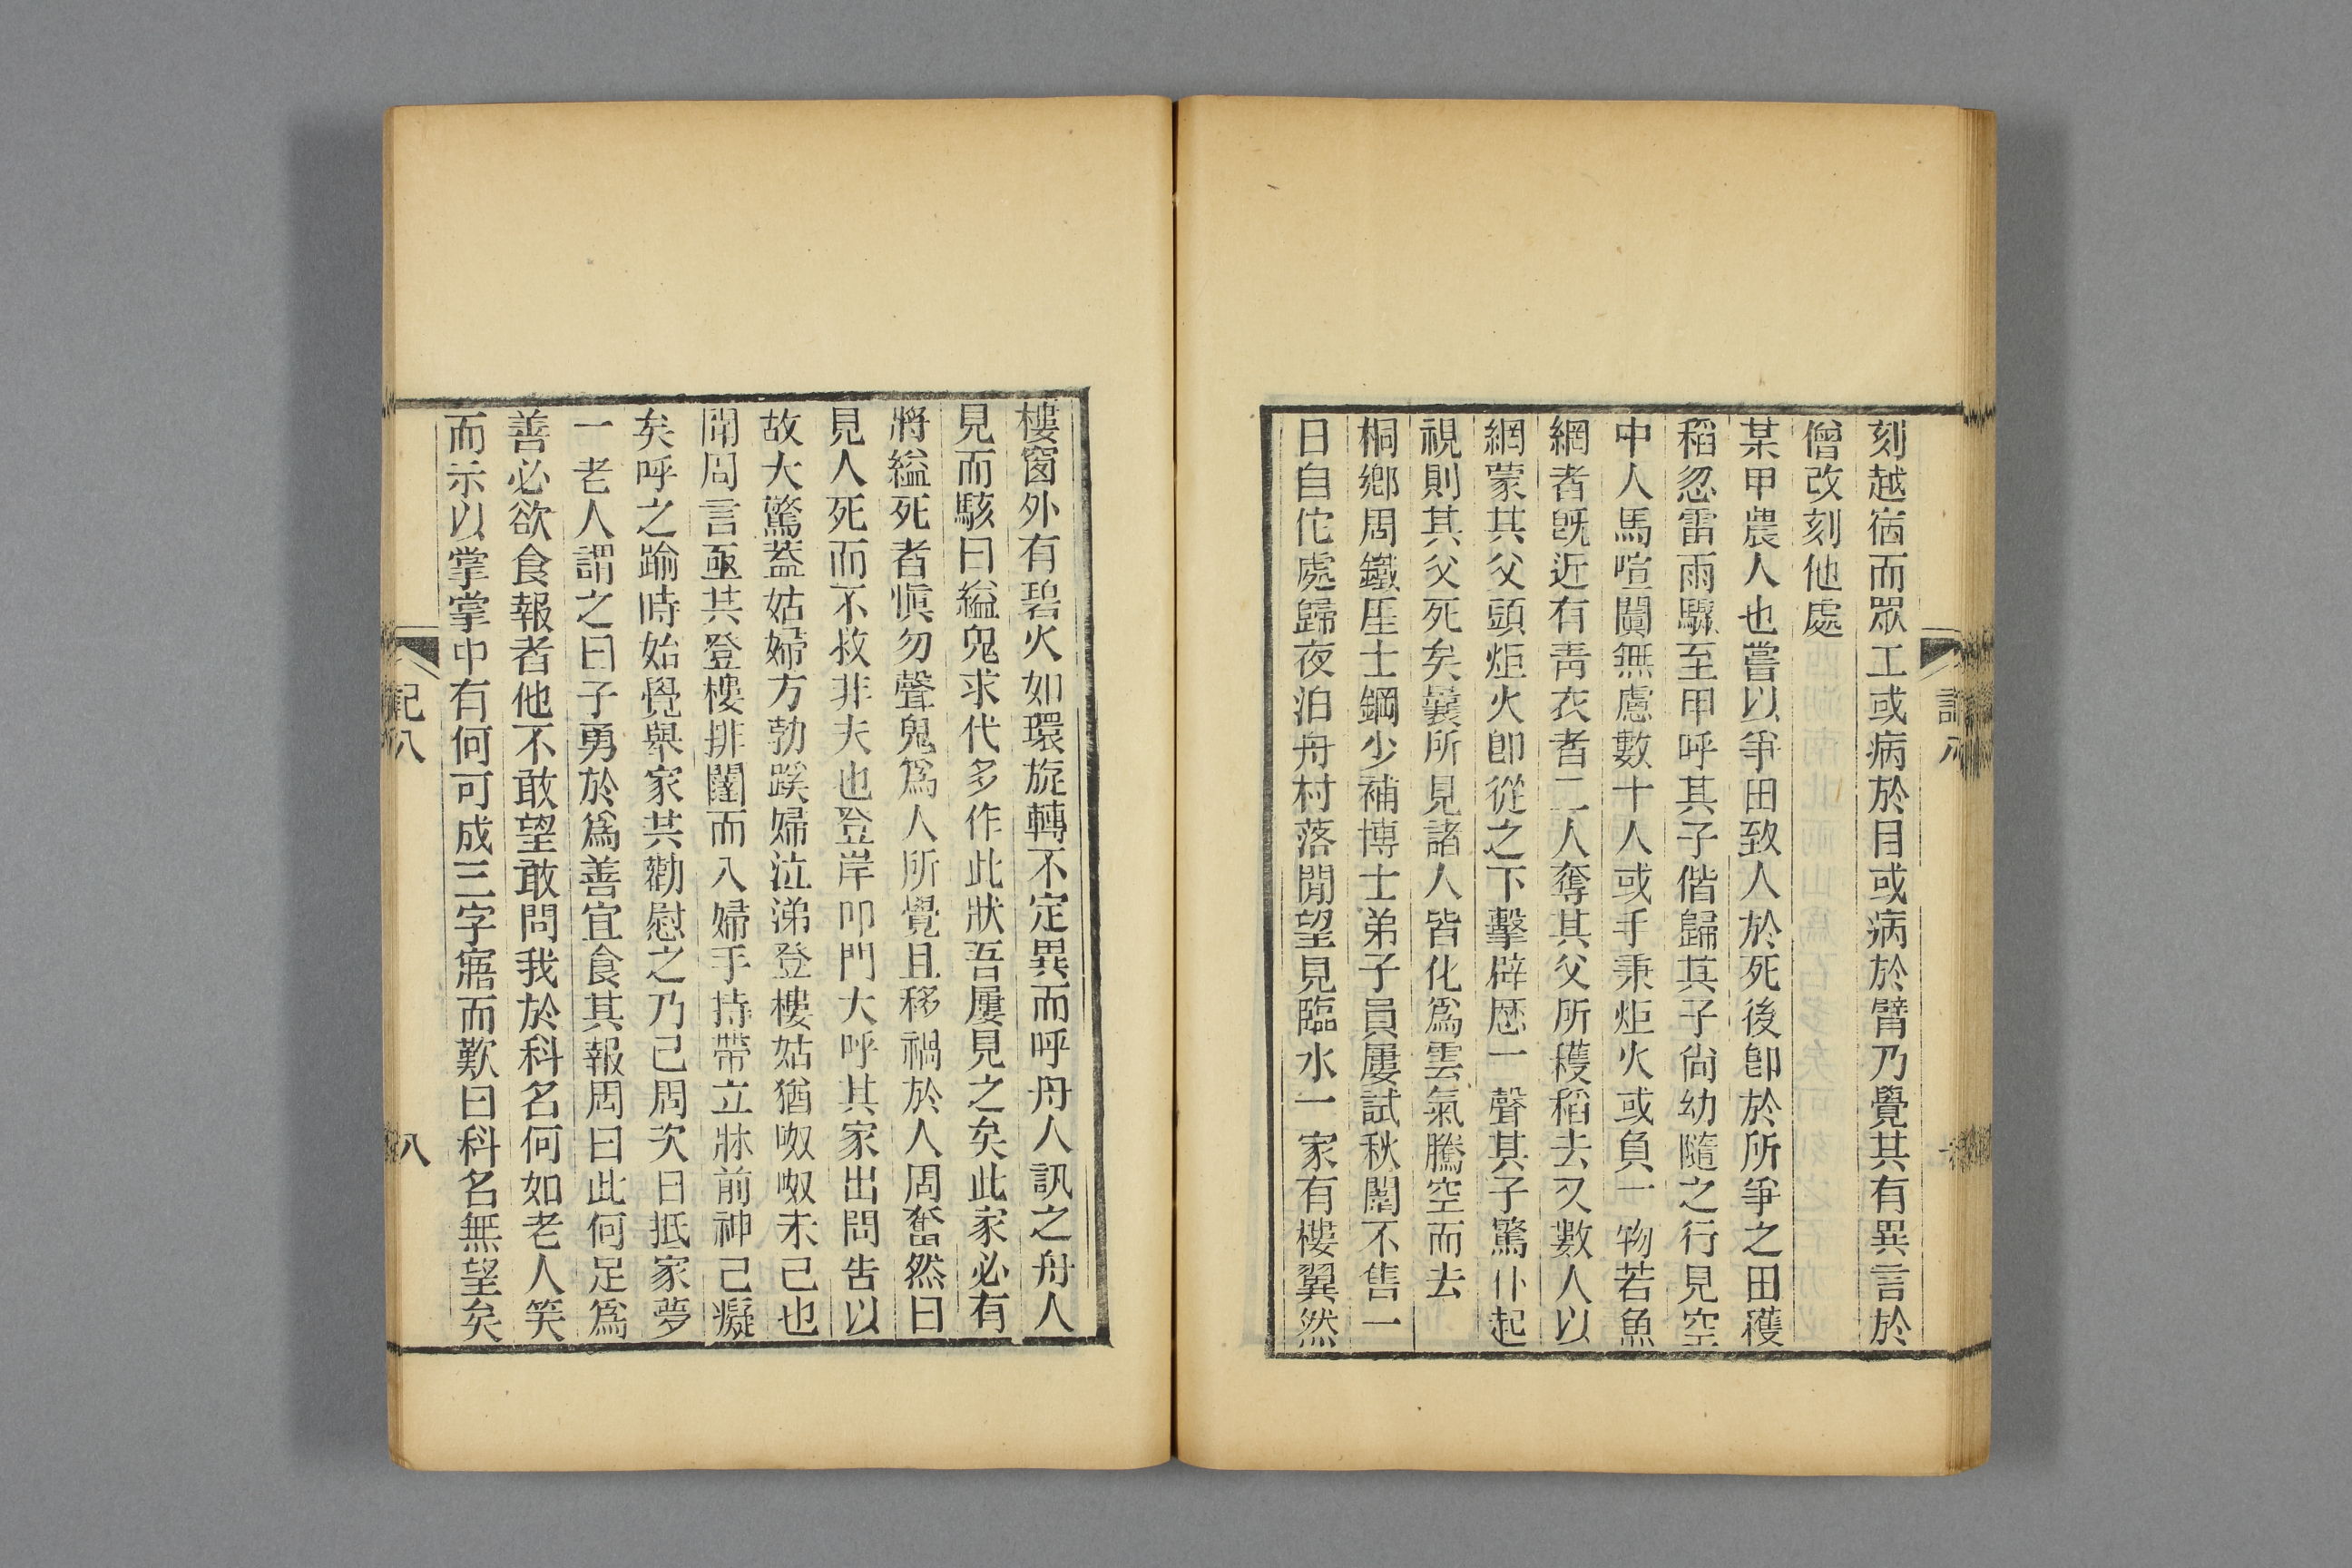 刻越宿而眾工或病於目或病於臂乃覺其有異言於
僧改刻他處
某甲農人也嘗以爭田致人於死後卽於所爭之田穫
稻忽雷雨驟至甲呼其子偕歸其子尙幼隨之行見空
中人馬喧闐無慮數十人或手秉炬火或負一物若魚
網者旣近有靑衣者二人奪其父所穫稻去又數人以
網蒙其父頭炬火卽從之下擊霹靂一聲其子驚仆起
視則其父死矣曩所見諸人皆化爲雲氣騰空而去
桐鄉周鐵厓士鋼少補博士弟子員屢試秋闈不售一
日自佗處歸夜泊舟村落閒望見臨水一家有樓翼然
樓窗外有碧火如環旋轉不定異而呼舟人訊之舟人
見而駭曰縊鬼求代多作此狀吾屢見之矣此家必有
將縊死者愼勿聲鬼爲人所覺且移禍於人周奮然曰
見人死而不救非夫也登岸叩門大呼其家出問告以
故大驚葢姑婦方勃蹊婦泣涕登樓姑猶呶呶未已也
聞周言亟共登樓排闥而入婦手持帶立牀前神已癡
矣呼之踰時始覺舉家共勸慰之乃已周次日抵家夢
一老人謂之曰子勇於爲善宜食其報周曰此何足爲
善必欲食報者他不敢望敢問我於科名何如老人笑
而示以掌掌中有何可成三字寤而歎曰科名無望矣
記八
八